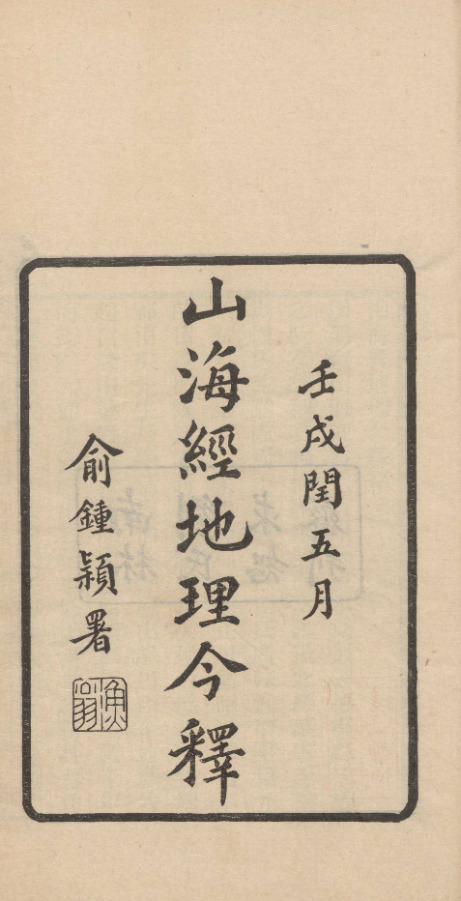 壬戌閏五月
山海經地理今釋
俞鍾穎署
漁翁